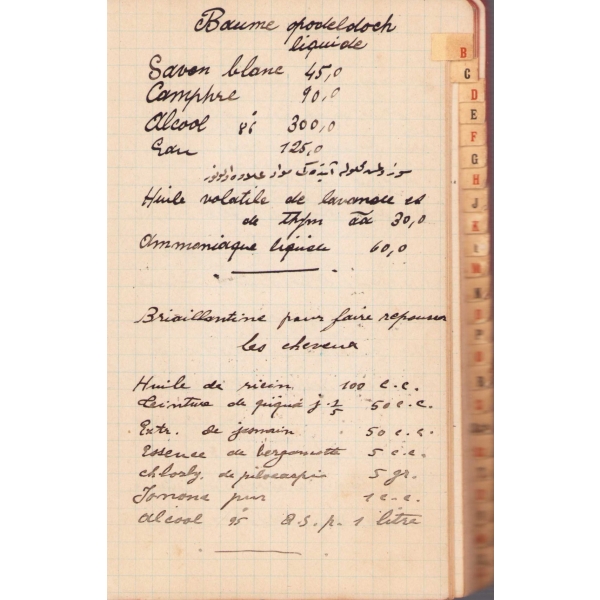 Baume opodeldoch
liquide
Savon blanc 45,0
Camphre 90,0
Alcool 300,0
Eau 125,0
Huile volatile de lavande et
de thym āā 30,0
Ammoniaque liquide 60,0
Briaillantine pour faire repousser
les cheveux
Huile de ricin 100 c.c.
Teinture de 1/5 50 c.c.
Extr. de jasmin 50 c.c.
Essence de bergamotte 5 c.c.
chlorhy. de pilocarpin 5 gr.
Jonone pur 1 c.c.
alcool 95 Q.S.p. 1 litre
B
C
D
E
F
G
H
J
K
L
M
N
O
P